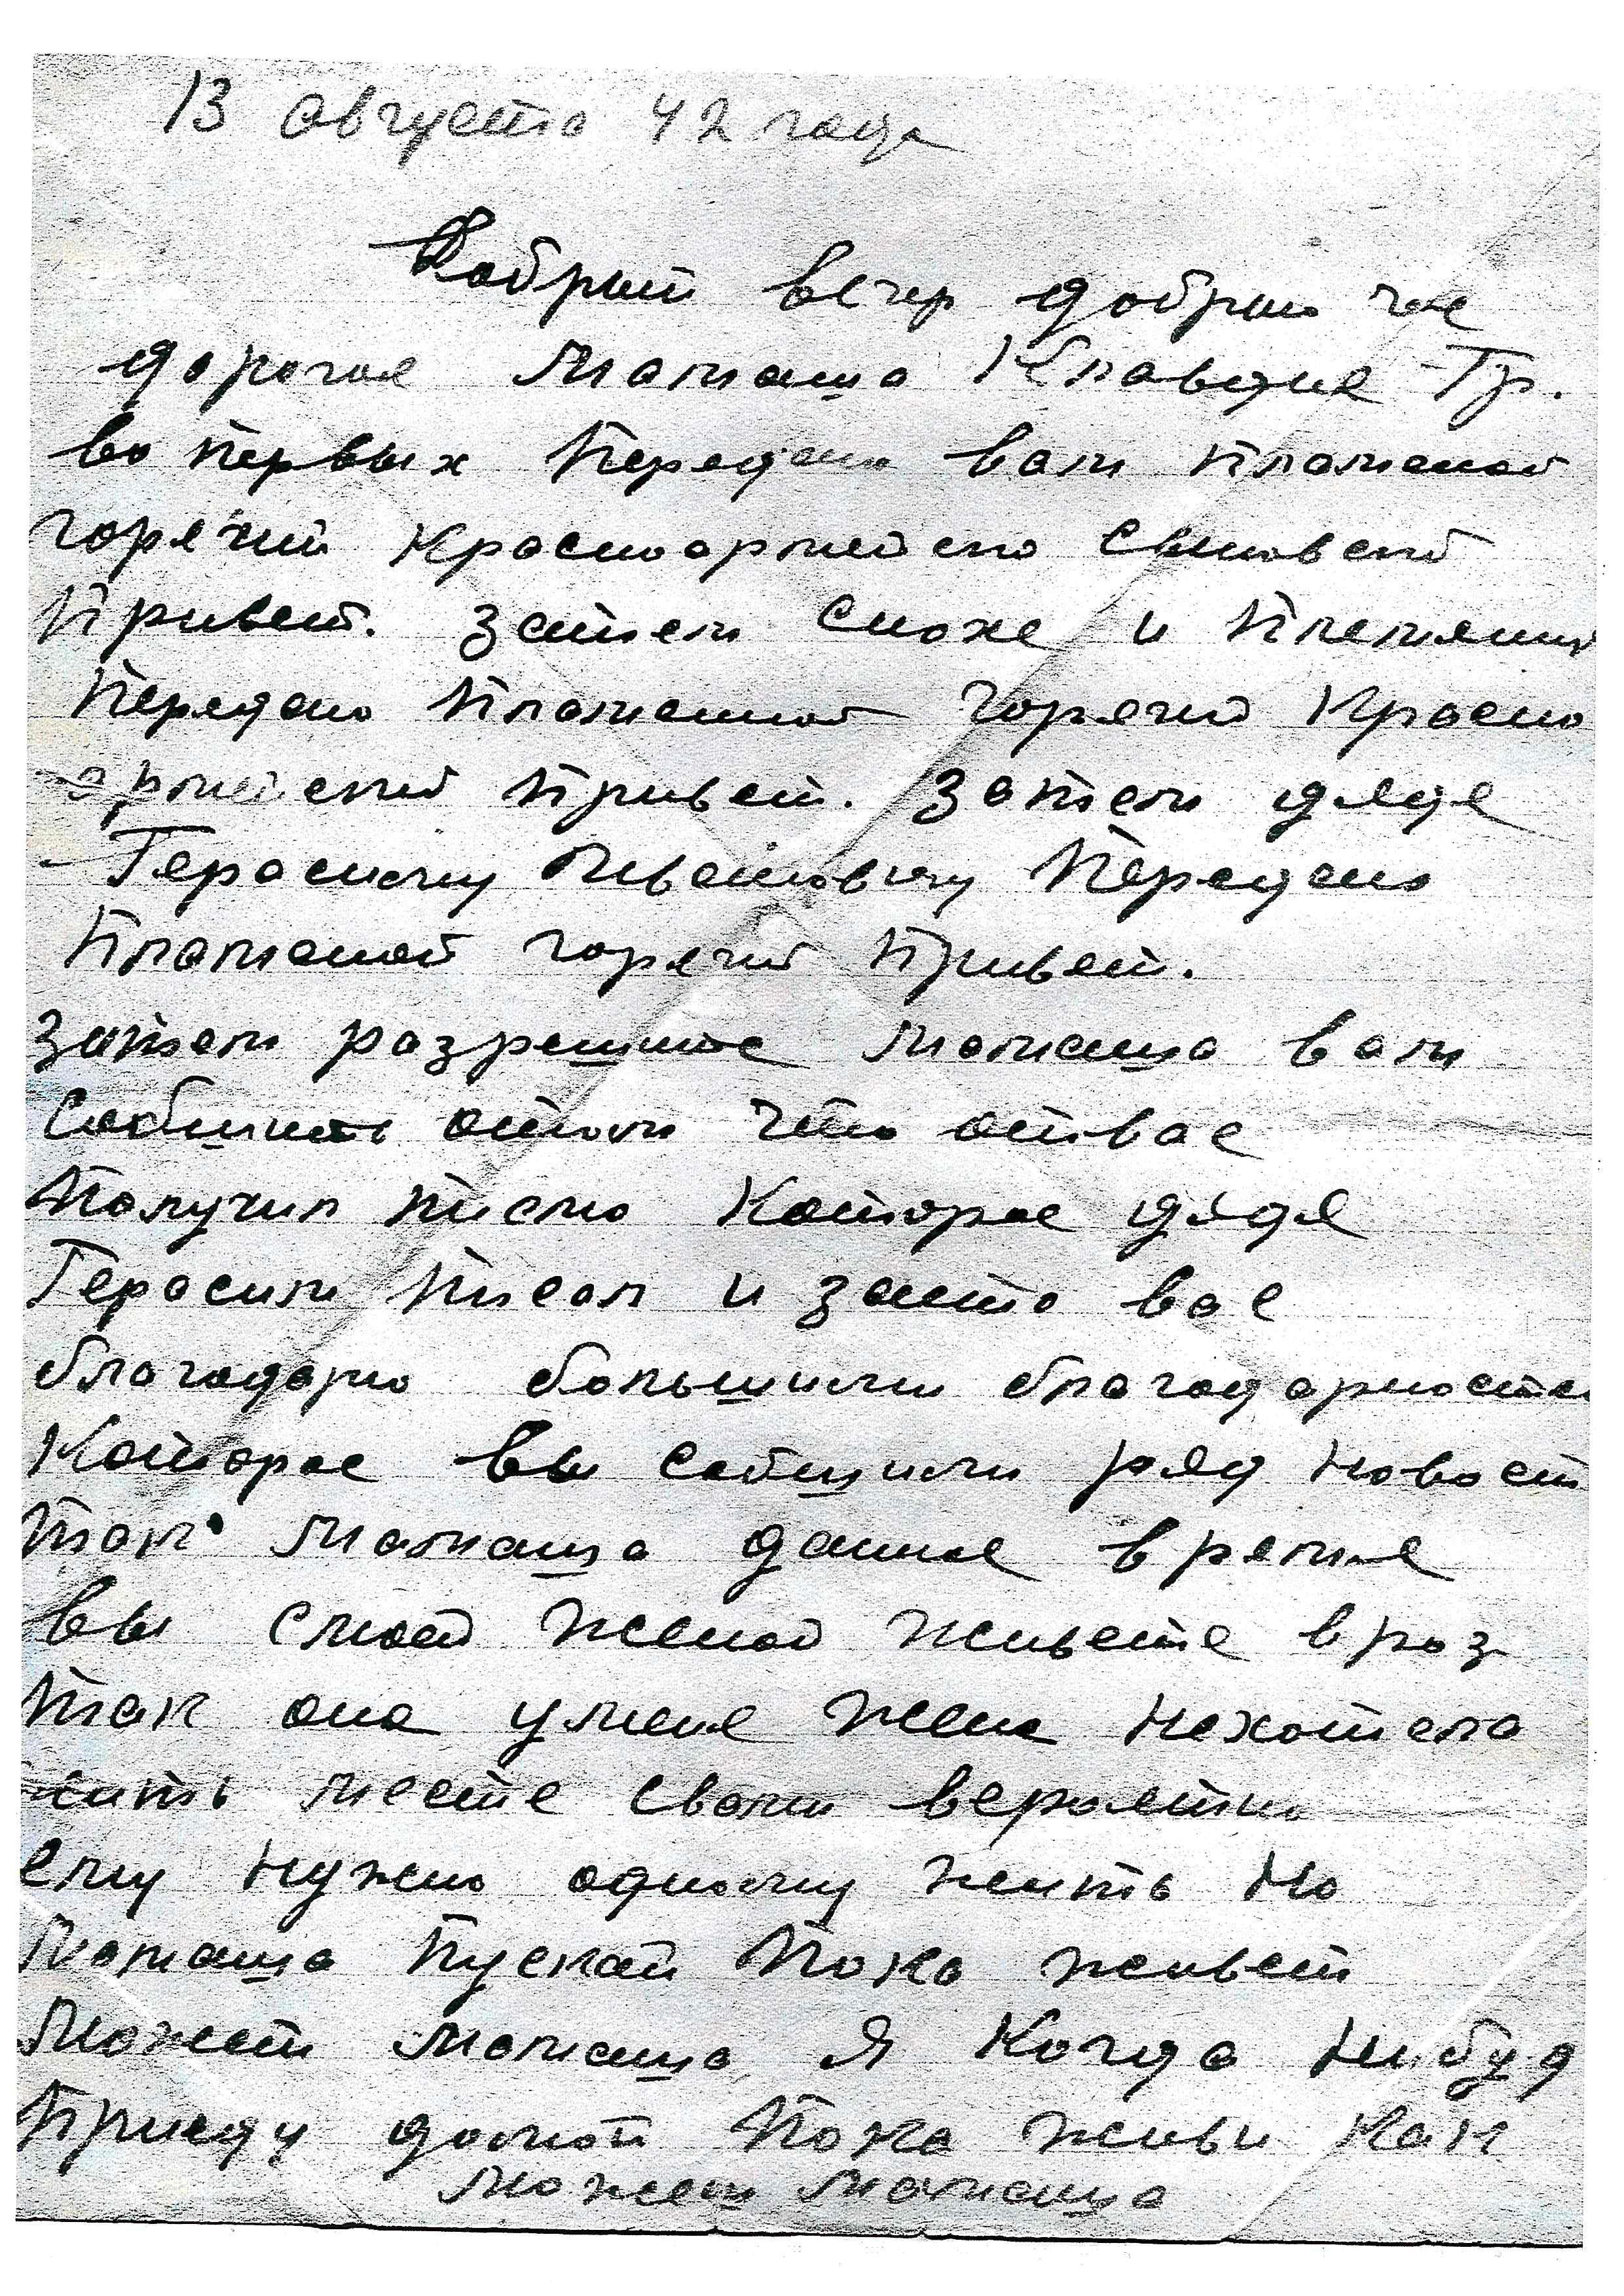 13 августа 42 года
Добрый вечер добрый час
дорогая Мамаша Клавдия Гр.
во первых Передаю вам Пламеной
горячий Красноармейско Сыновской
Привет. Затем Снохе и Племяни
Передаю Пламенной Горячий Красно
армейский Привет. Затем дяде
Герасиму Ивановичу Передаю
Пламеной горячий Привет.
Затем разрешите Мамаша вам
Собщить отом что отвас
Получил Писмо Которое дядя
Герасим Писал и заето вас
благодарю большими благодарности
Которое вы собщили ряд новост
так Мамаша даное время
вы смоей женой живете враз
так она уменя жена нехотела
жить месте Свами вероятно
ему нужно одному жить Но
Мамаша Пускай Пока живет
Может Мамаша Я Когда Нибуд
Приеду домой Пока живи Как
Можеш Мамаша